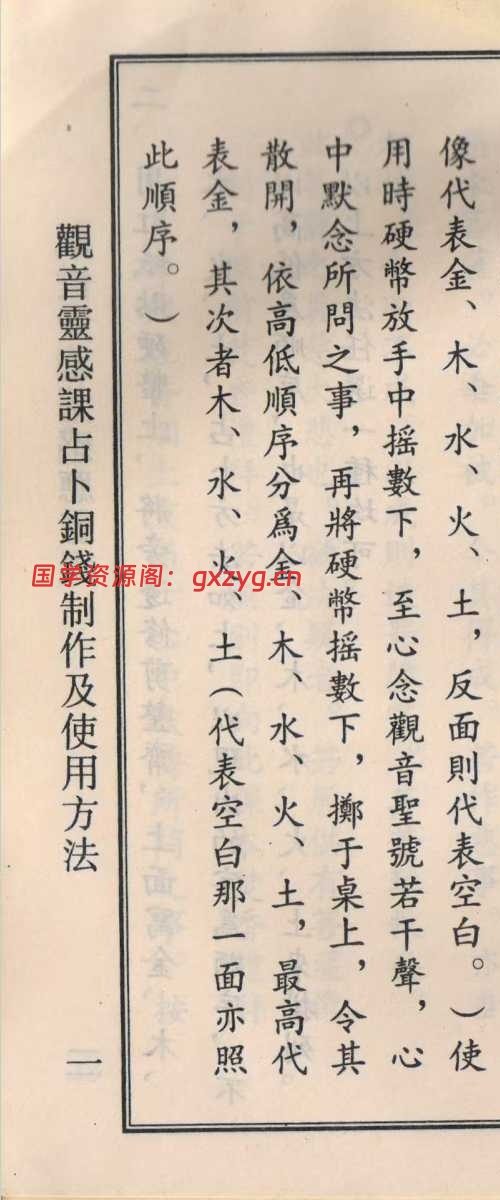 像代表金、木、水、火、土，反面則代表空白。）使
用時硬幣放手中摇數下，至心念觀音聖號若干聲，心
中默念所問之事，再將硬幣摇數下，擲于桌上，令其
散開，依高低順序分爲金、木、水、火、土，最高代
表金，其次者木、水、火、土（代表空白那一面亦照
此順序。）
觀音靈感課占卜銅錢制作及使用方法
一
国学资源阁：gxzyg.cn